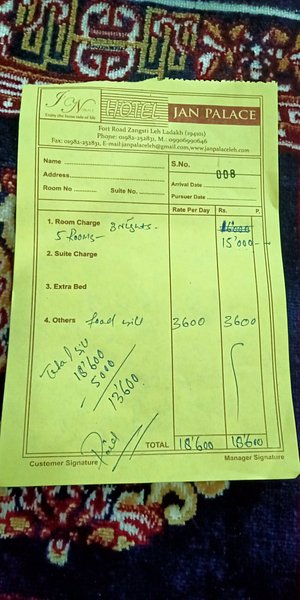 J N
Enjoy the home side of life
HOTEL JAN PALACE
Fort Road Zangsti Leh Ladakh (194101)
Phone: 01982-251831, M.: 09906990646
Fax: 01982-251831, E-mail:janpalaceleh@gmail.com,www.janpalaceleh.com
Name
S.No. 008
Address
Arrival Date
Room No
Suite No.
Pursuer Date
Rate Per Day Rs. P.
1. Room Charge 3 nights -
5 Rooms -
15'000 -
2. Suite Charge
3. Extra Bed
4. Others food bill 3600 3600
Total bill
18'600
5000
13'600
Paid
TOTAL 18'600 18'600
Customer Signature
Manager Signature